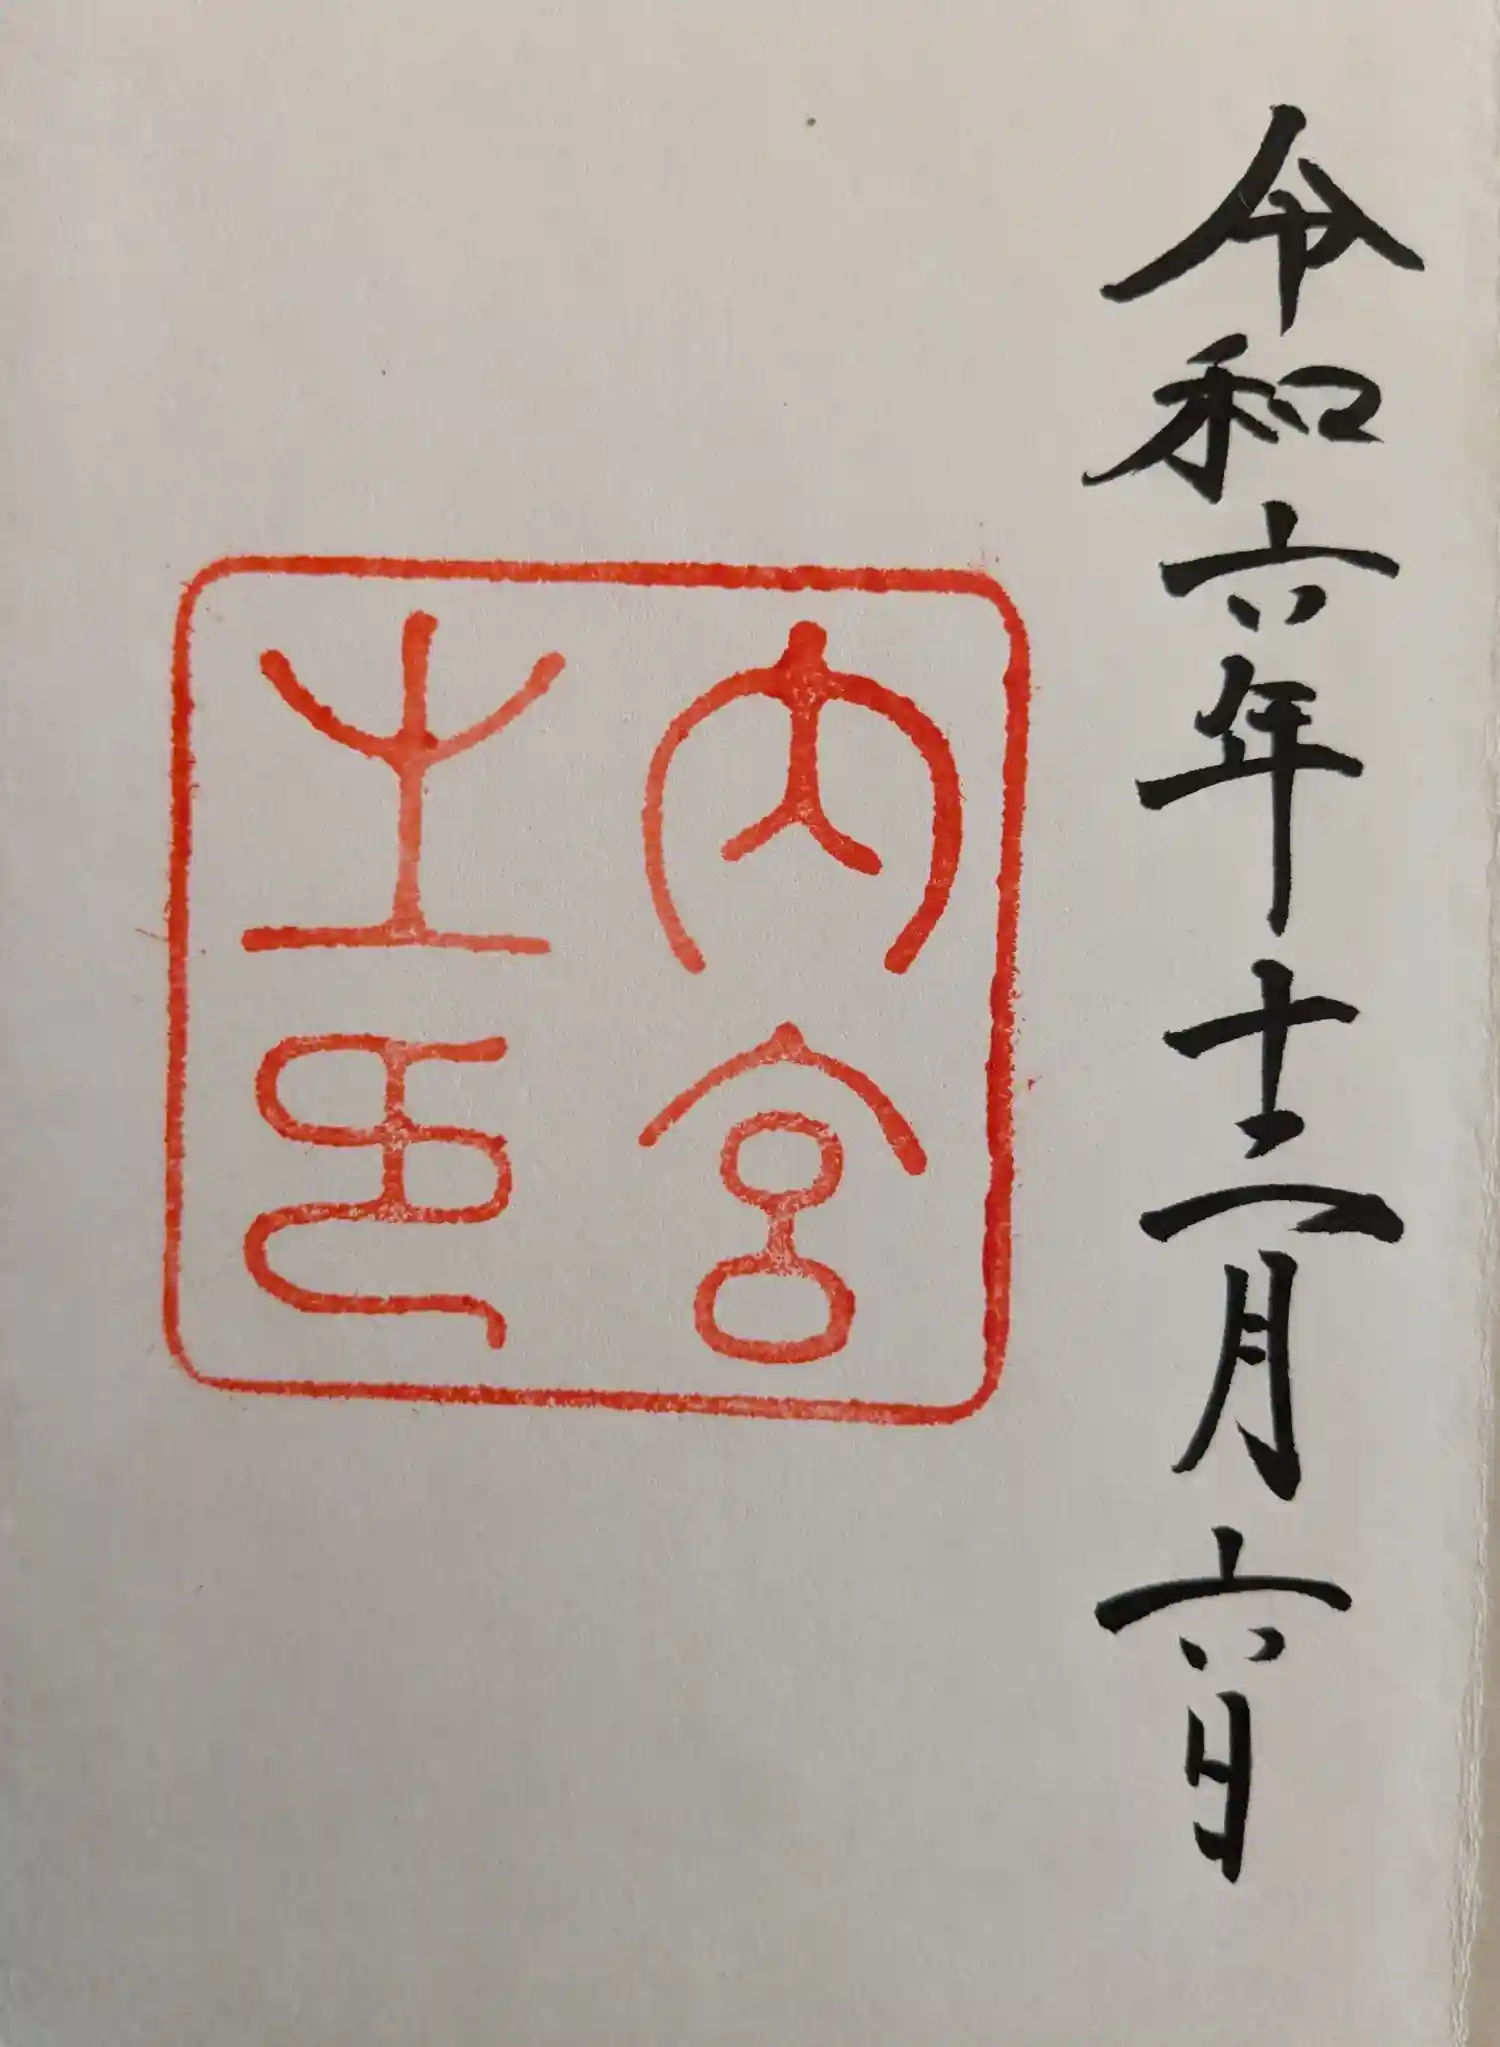 令和六年十二月六日
内宮
之印